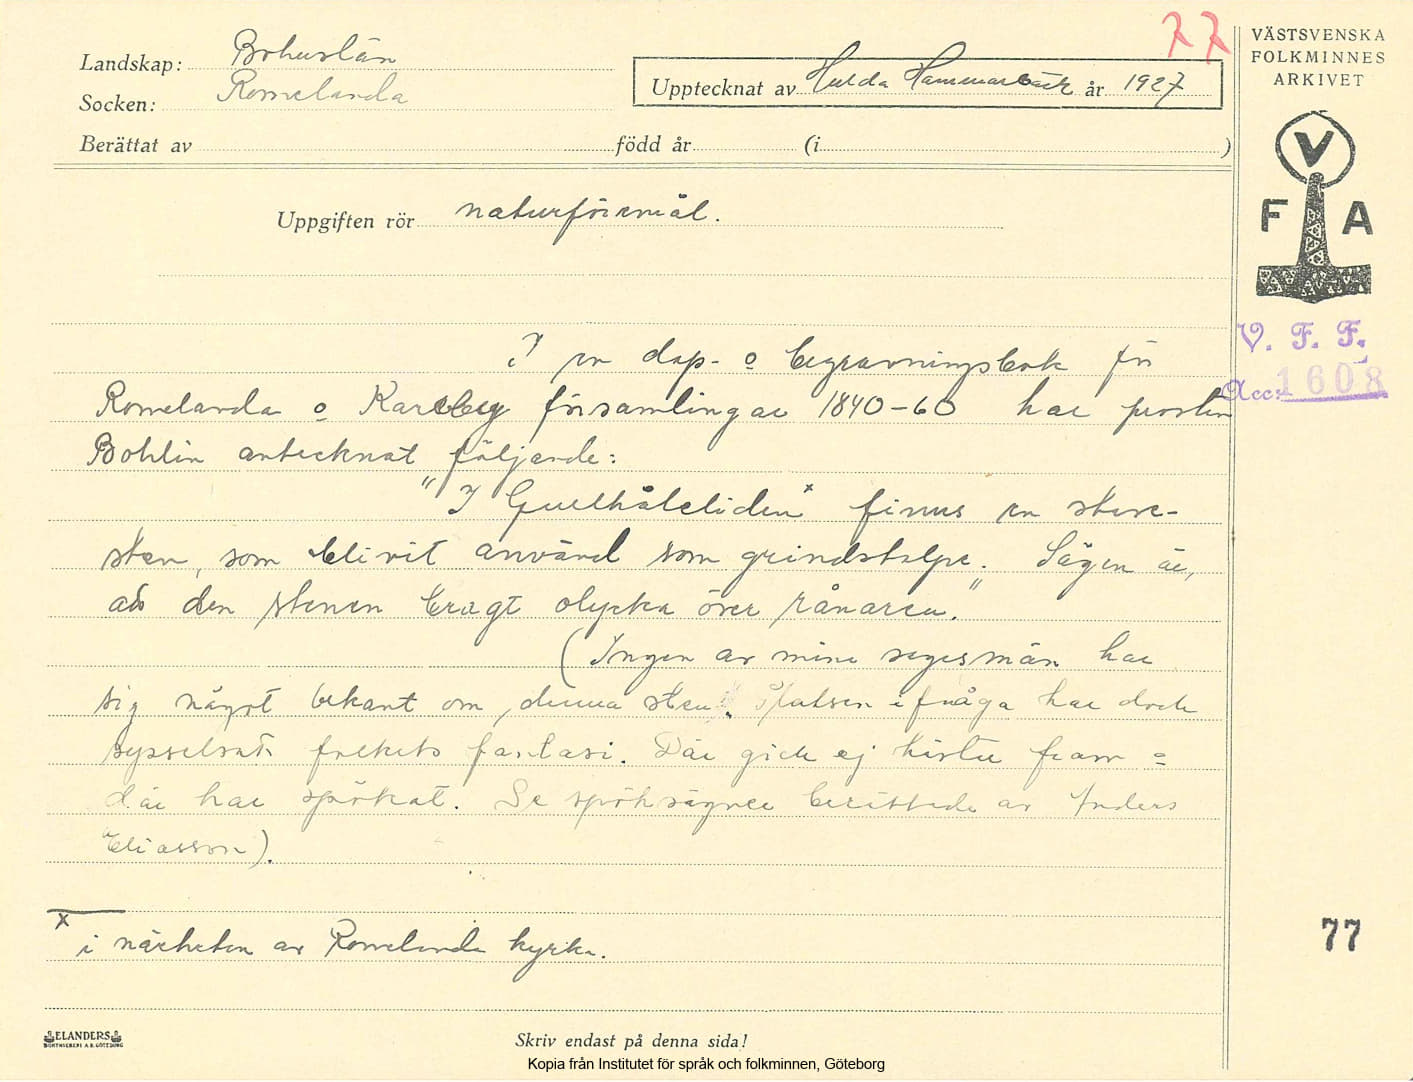 77
VÄSTSVENSKA
FOLKMINNES
ARKIVET
Landskap: Bohuslän
Socken: Romelanda
Upptecknat av Hulda Hammarbäck år 1927
Berättat av född år (i )
V
F A
Uppgiften rör naturföremål.
V. F. F.
Acc: 1608
I en dop- o begravningsbok för
Romelanda o Kareby församlingar 1840-60 har prosten
Bohlin antecknat följande:
"I Gullhålsliden x finnes en
sten, som blivit använd som grindstolpe. Sägen är,
att den stenen bragt olycka över rånaren."
(Ingen av mina sagesmän har
sig något bekant om denna sten. Platsen ifråga har dock
sysselsatt folkets fantasi. Där gick ej hästar fram o
där har spökat. Se spöksägner berättade av Anders
Eliasson).
x i närheten av Romelanda kyrka.
77
ELANDERS
BOKTRYCKERI A.B. GÖTEBORG
Skriv endast på denna sida!
Kopia från Institutet för språk och folkminnen, Göteborg